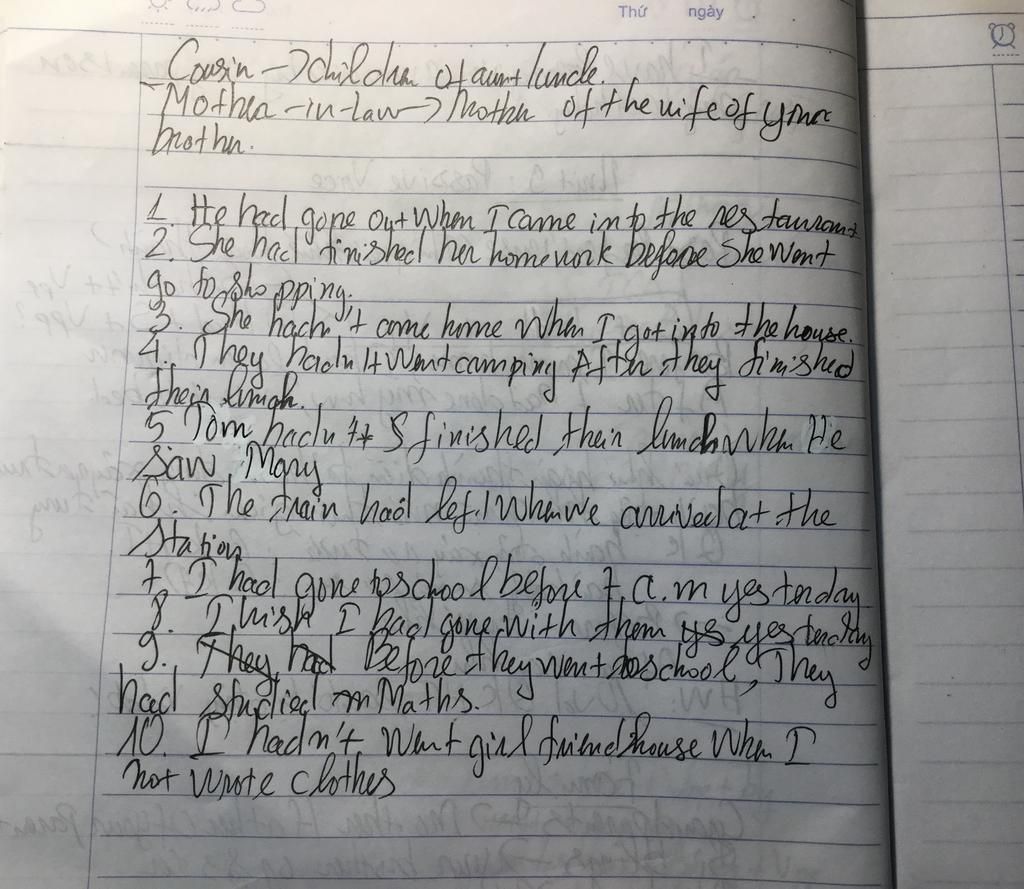 Thứ ngày
Cousin → children of aunt/uncle.
Mother-in-law → Mother of the wife of your
brother.
1. He had gone out when I came in to the restaurant
2. She had finished her homework before she went
go to shopping.
3. She hadn't come home when I got into the house.
4. They hadn't went camping After they finished
their lunch.
5 Tom hadn't finished their lunch when He
saw Mary
6. The train had left when we arrived at the
station
7. I had gone to school before 7 a.m yesterday
8. I wish I had gone with them ys yesterday
9. They had Before they went to school, They
had studied Maths.
10. I hadn't went girl friend house when I
not wrote clothes